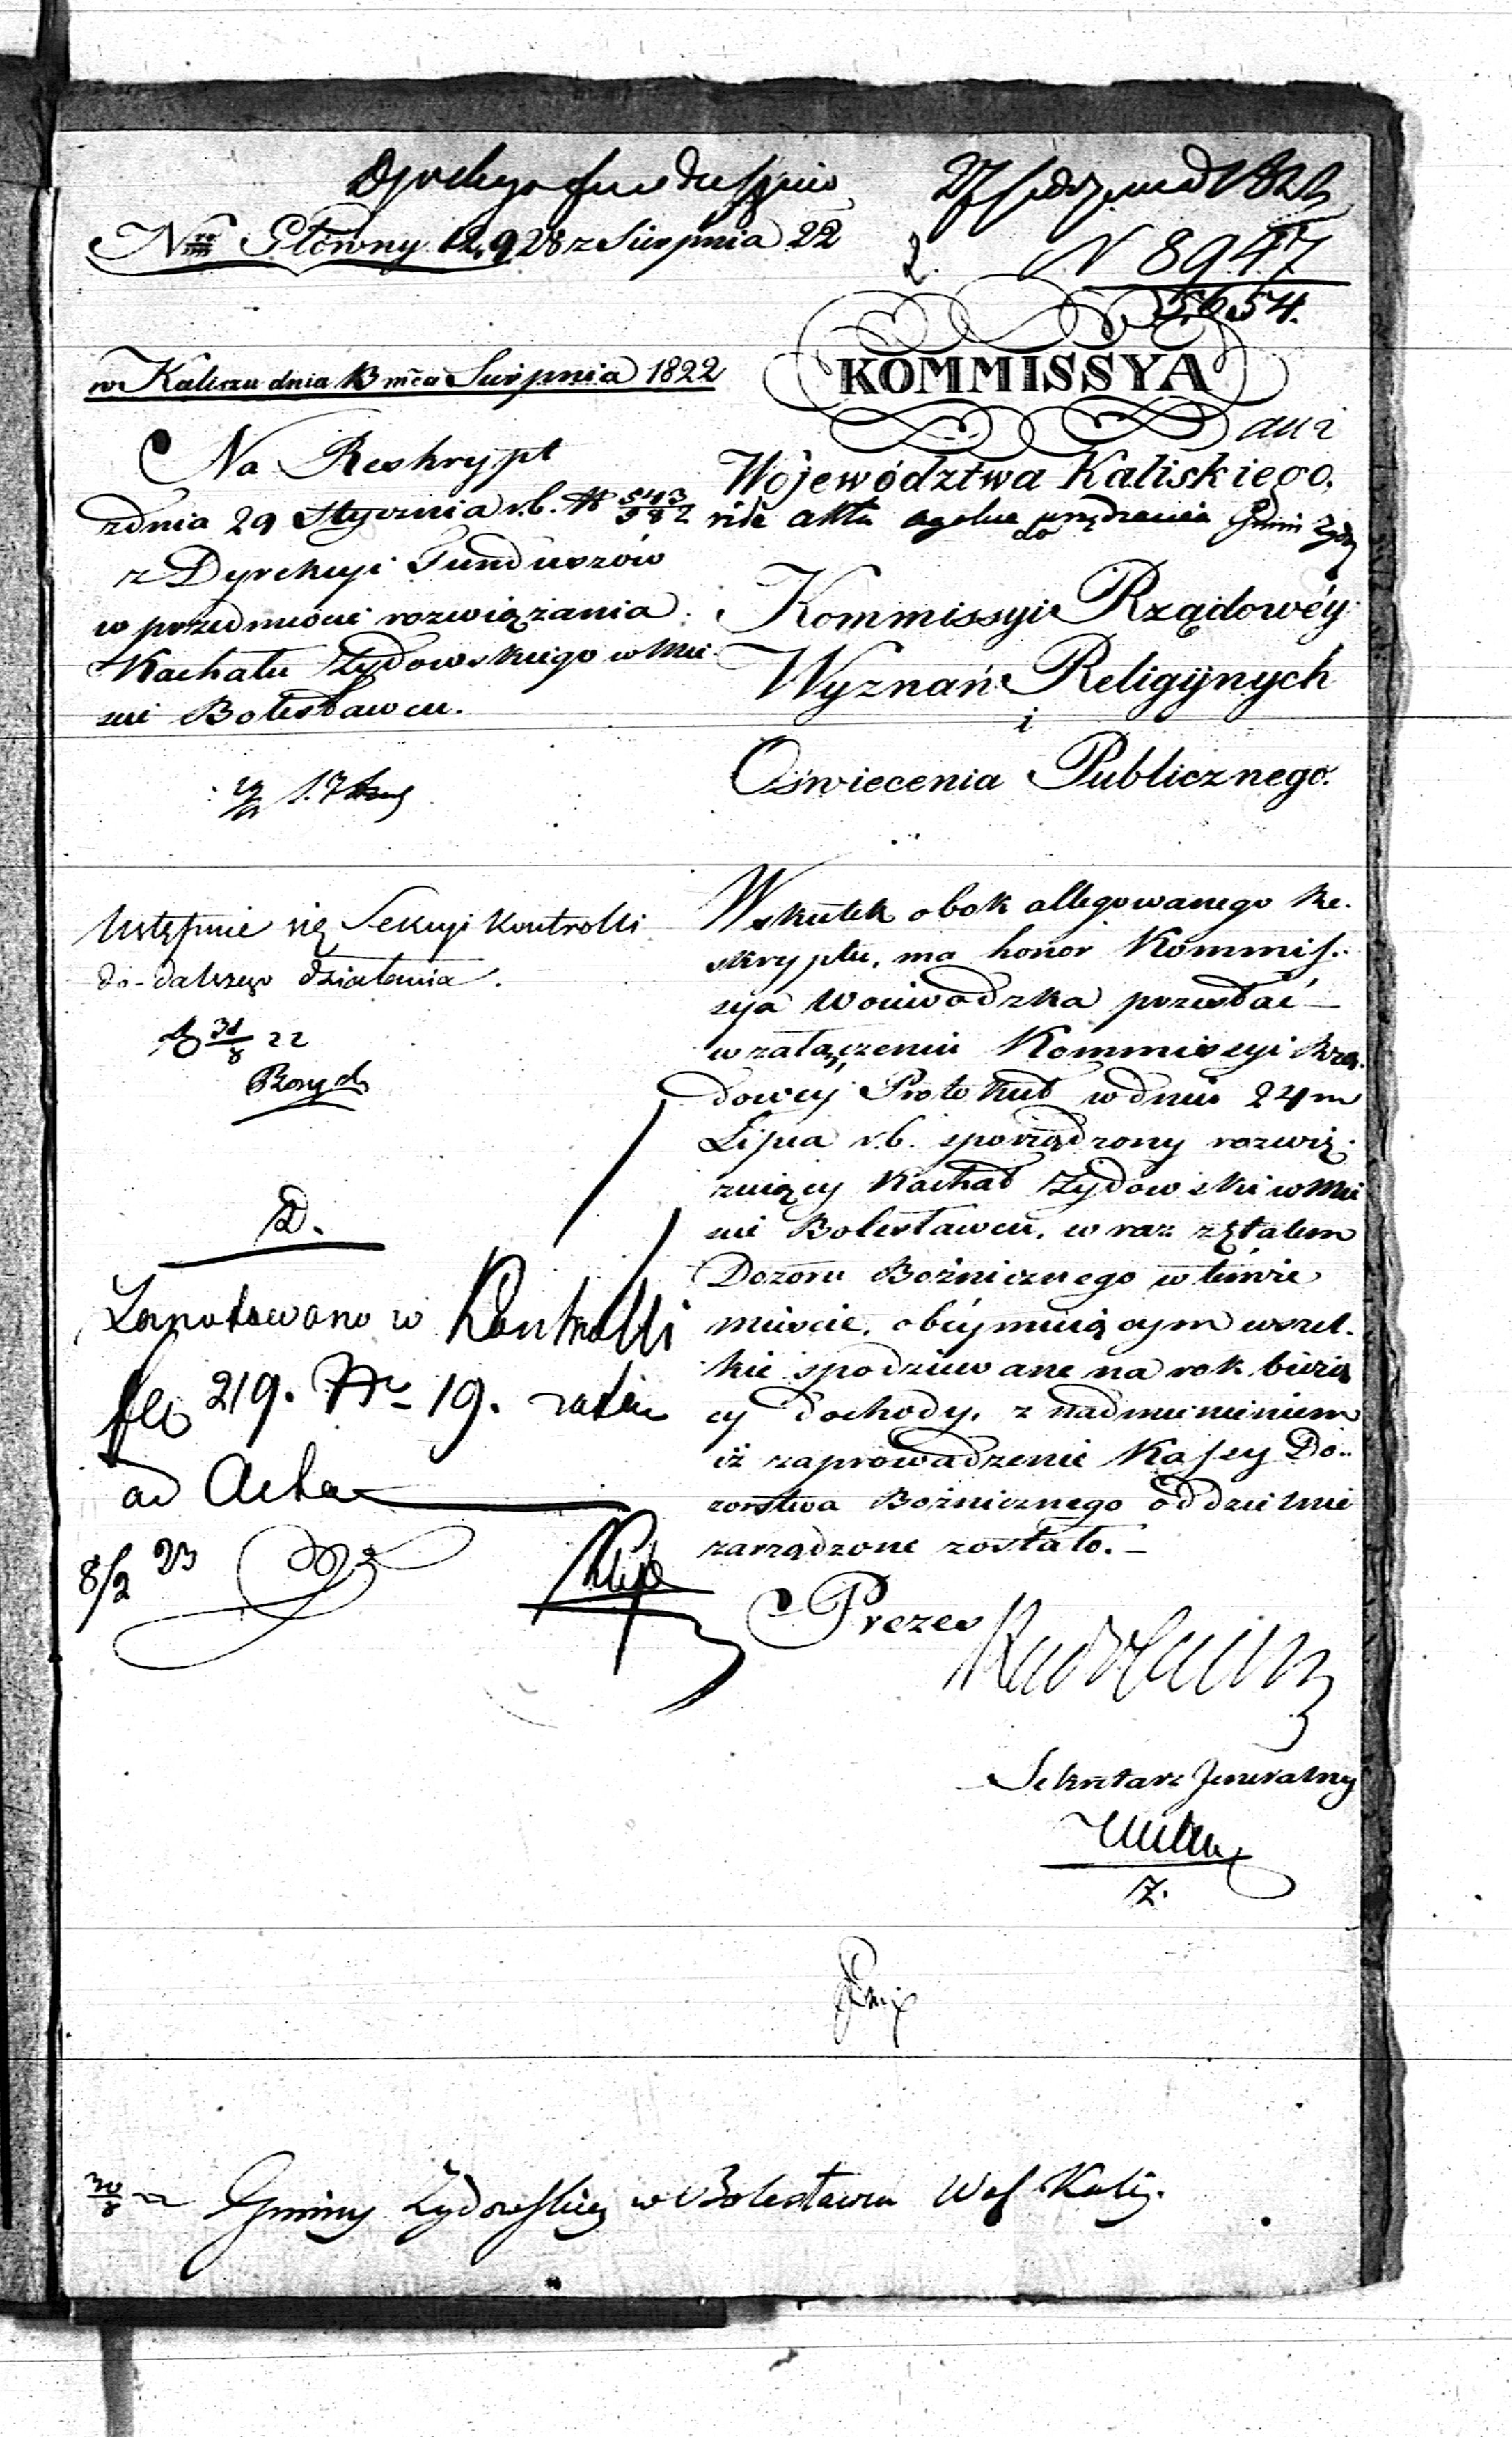 27 1822
Nro Główny 12,928 z Sierpnia 22
2. N 8947
5654.
w Kaliszu dnia 13 mca Sierpnia 1822
KOMMISSYA
Województwa Kaliskiego.
Na Reskrypt
z dnia 29 Stycznia r.b. N 543/582
z Dyrekcyi Funduszów
w przedmiocie rozwiązania
Kachału Żydowskiego w Mie-
scie Bolesławcu.
vide akta ogólne urządzenia Gmin Żyd
do
Kommissyi Rządowéy
Wyznań Religijnych
i
Oświecenia Publicznego.
Ustąpmie się Sekcyi Kontrolli
do dalszego działania.
31/8 22
D.
Zanotowano w Kontrolli
219. Nr 19.
ad Acta
8/2 23
Wskutek obok allegowanego Re-
skryptu, ma honor Kommis-
sya Woiewódzka przesłać
w załączeniu Kommissyi Rzą-
dowey Protokuł w dniu 24m
Lipca r.b. sporządzony rozwią-
zuiący Kachał Żydowski w Mie
scie Bolesławcu, wraz z Etatem
Dozoru Bożnicznego w temże
mieście, obéymuiącym wszel-
kie spodziewane na rok bieżą
cy dochody, z nadmienieniem
iż zaprowadzenie Kassy Do-
zorstwa Bożnicznego oddzielnie
zarządzone zostało.
Prezes
Radoliński
Sekretarz Jeneralny
Z.
30/8 22 Gminy Żydowskiey w Bolesławcu Wof Kalis.